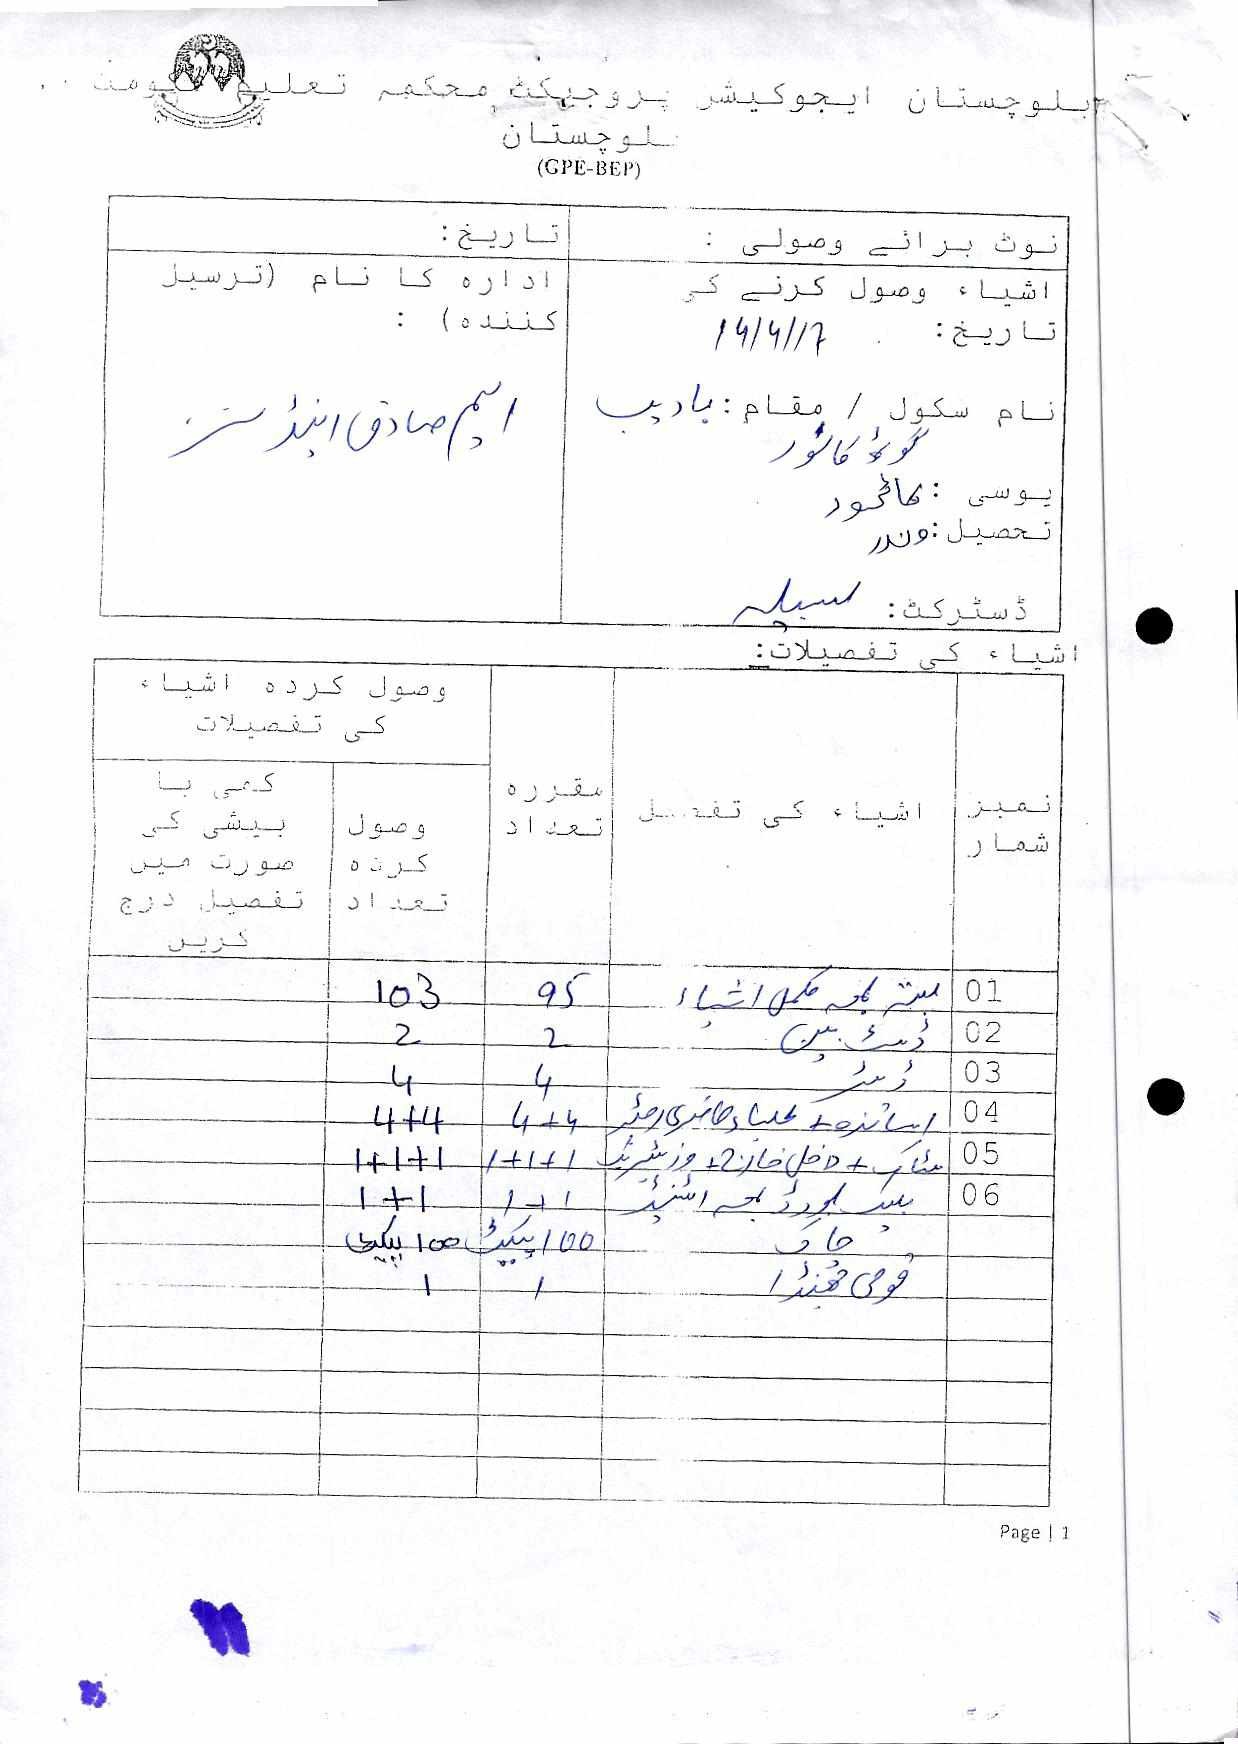 بلوچستان ایجوکیشن پروجیکٹ محکمہ تعلیم
بلوچستان
(GPE-BEP)
نوٹ برائے وصولی :
تاریخ:
اشیاء وصول کرنے کی
تاریخ: 14/4/17
نام سکول / مقام:
گوٹھ
یوسی :
تحصیل: وندر
ڈسٹرکٹ: لسبیلہ
ادارہ کا نام (ترسیل
کنندہ) :
ایم صادق اینڈ سنز
اشیاء کی تفصیلات:
نمبر شمار
اشیاء کی تفصیل
مقررہ تعداد
وصول کردہ اشیاء
کی تفصیلات
وصول کردہ تعداد
کمی یا
بیشی کی
صورت میں
تفصیل درج
کریں
01 بستہ بمعہ مکمل اشیاء 95 103
02 ڈسٹ بین 2 2
03 ڈسٹر 4 4
04 اساتذہ + طلباء حاضری رجسٹر 4+4 4+4
05 سٹاک + داخل خارج + وزیٹر 1+1+1 1+1+1
06 بلیک بورڈ بمعہ اسٹینڈ 1+1 1+1
چاک 100 پیکٹ 100 پیکٹ
قومی جھنڈا 1 1
Page | 1